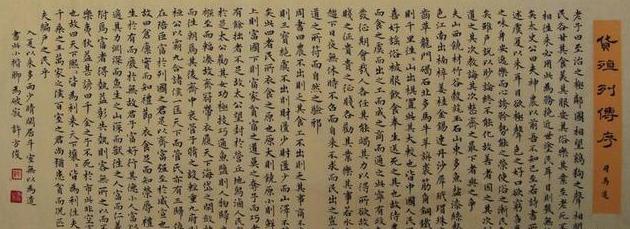 貨殖列傳序
司馬遷
老子曰至治之極鄰國相望雞狗之聲相聞
民各甘其食美其服安其俗樂其業至老死不
相往來必用此為務輓近世塗民耳目則幾無行
矣太史公曰夫神農以前吾不知已至若詩書所
述虞夏以來耳目欲極聲色之好口欲窮芻豢
之味身安逸樂而心誇矜勢能之榮使俗之漸民久
矣雖戶說以眇論終不能化故善者因之其次利
道之其次教誨之其次整齊之最下者與之爭
夫山西饒材竹穀纑旄玉石山東多魚鹽漆絲聲
色江南出楠梓薑桂金錫連丹沙犀玳瑁珠璣
齒革龍門碣石北多馬牛羊旃裘筋角銅鐵
則千里往往山出棋置此其大較也皆中國人民所
喜好謠俗被服飲食奉生送死之具也故待農
而食之虞而出之工而成之商而通之此寧有政教
發徵期會哉人各任其能竭其力以得所欲故物
賤之徵貴貴之徵賤各勸其業樂其事若水之
趨下日夜無休時不召而自來不求而民出之豈非
道之所符而自然之驗邪
周書曰農不出則乏其食工不出則乏其事商不出
則三寶絕虞不出則財匱少財匱少而山澤不辟
矣此四者民所衣食之原也原大則饒原小則鮮
上則富國下則富家貧富之道莫之奪予而巧者
有餘拙者不足故太公望封於營丘地潟鹵人民
寡於是太公勸其女功極技巧通魚鹽則人物歸之
繈至而輻湊故齊冠帶衣履天下海岱之閒斂袂
而往朝焉其後齊中衰管子修之設輕重九府則
桓公以霸九合諸侯一匡天下而管氏亦有三歸位
在陪臣富於列國之君是以齊富強至於威宣也
故曰倉廩實而知禮節衣食足而知榮辱禮
生於有而廢於無故君子富好行其德小人富以
適其力淵深而魚生之山深而獸往之人富而仁義
附焉富者得勢益彰失勢則客無所之以而不
樂夷狄益甚諺曰千金之子不死於市此非空言
也故曰天下熙熙皆為利來天下壤壤皆為利往夫
千乘之王萬家之侯百室之君尚猶患貧而況匹
夫編戶之民乎
入夏以來多雨少晴閒居斗室無以為遣
書此小楷聊為破寂 許方俊